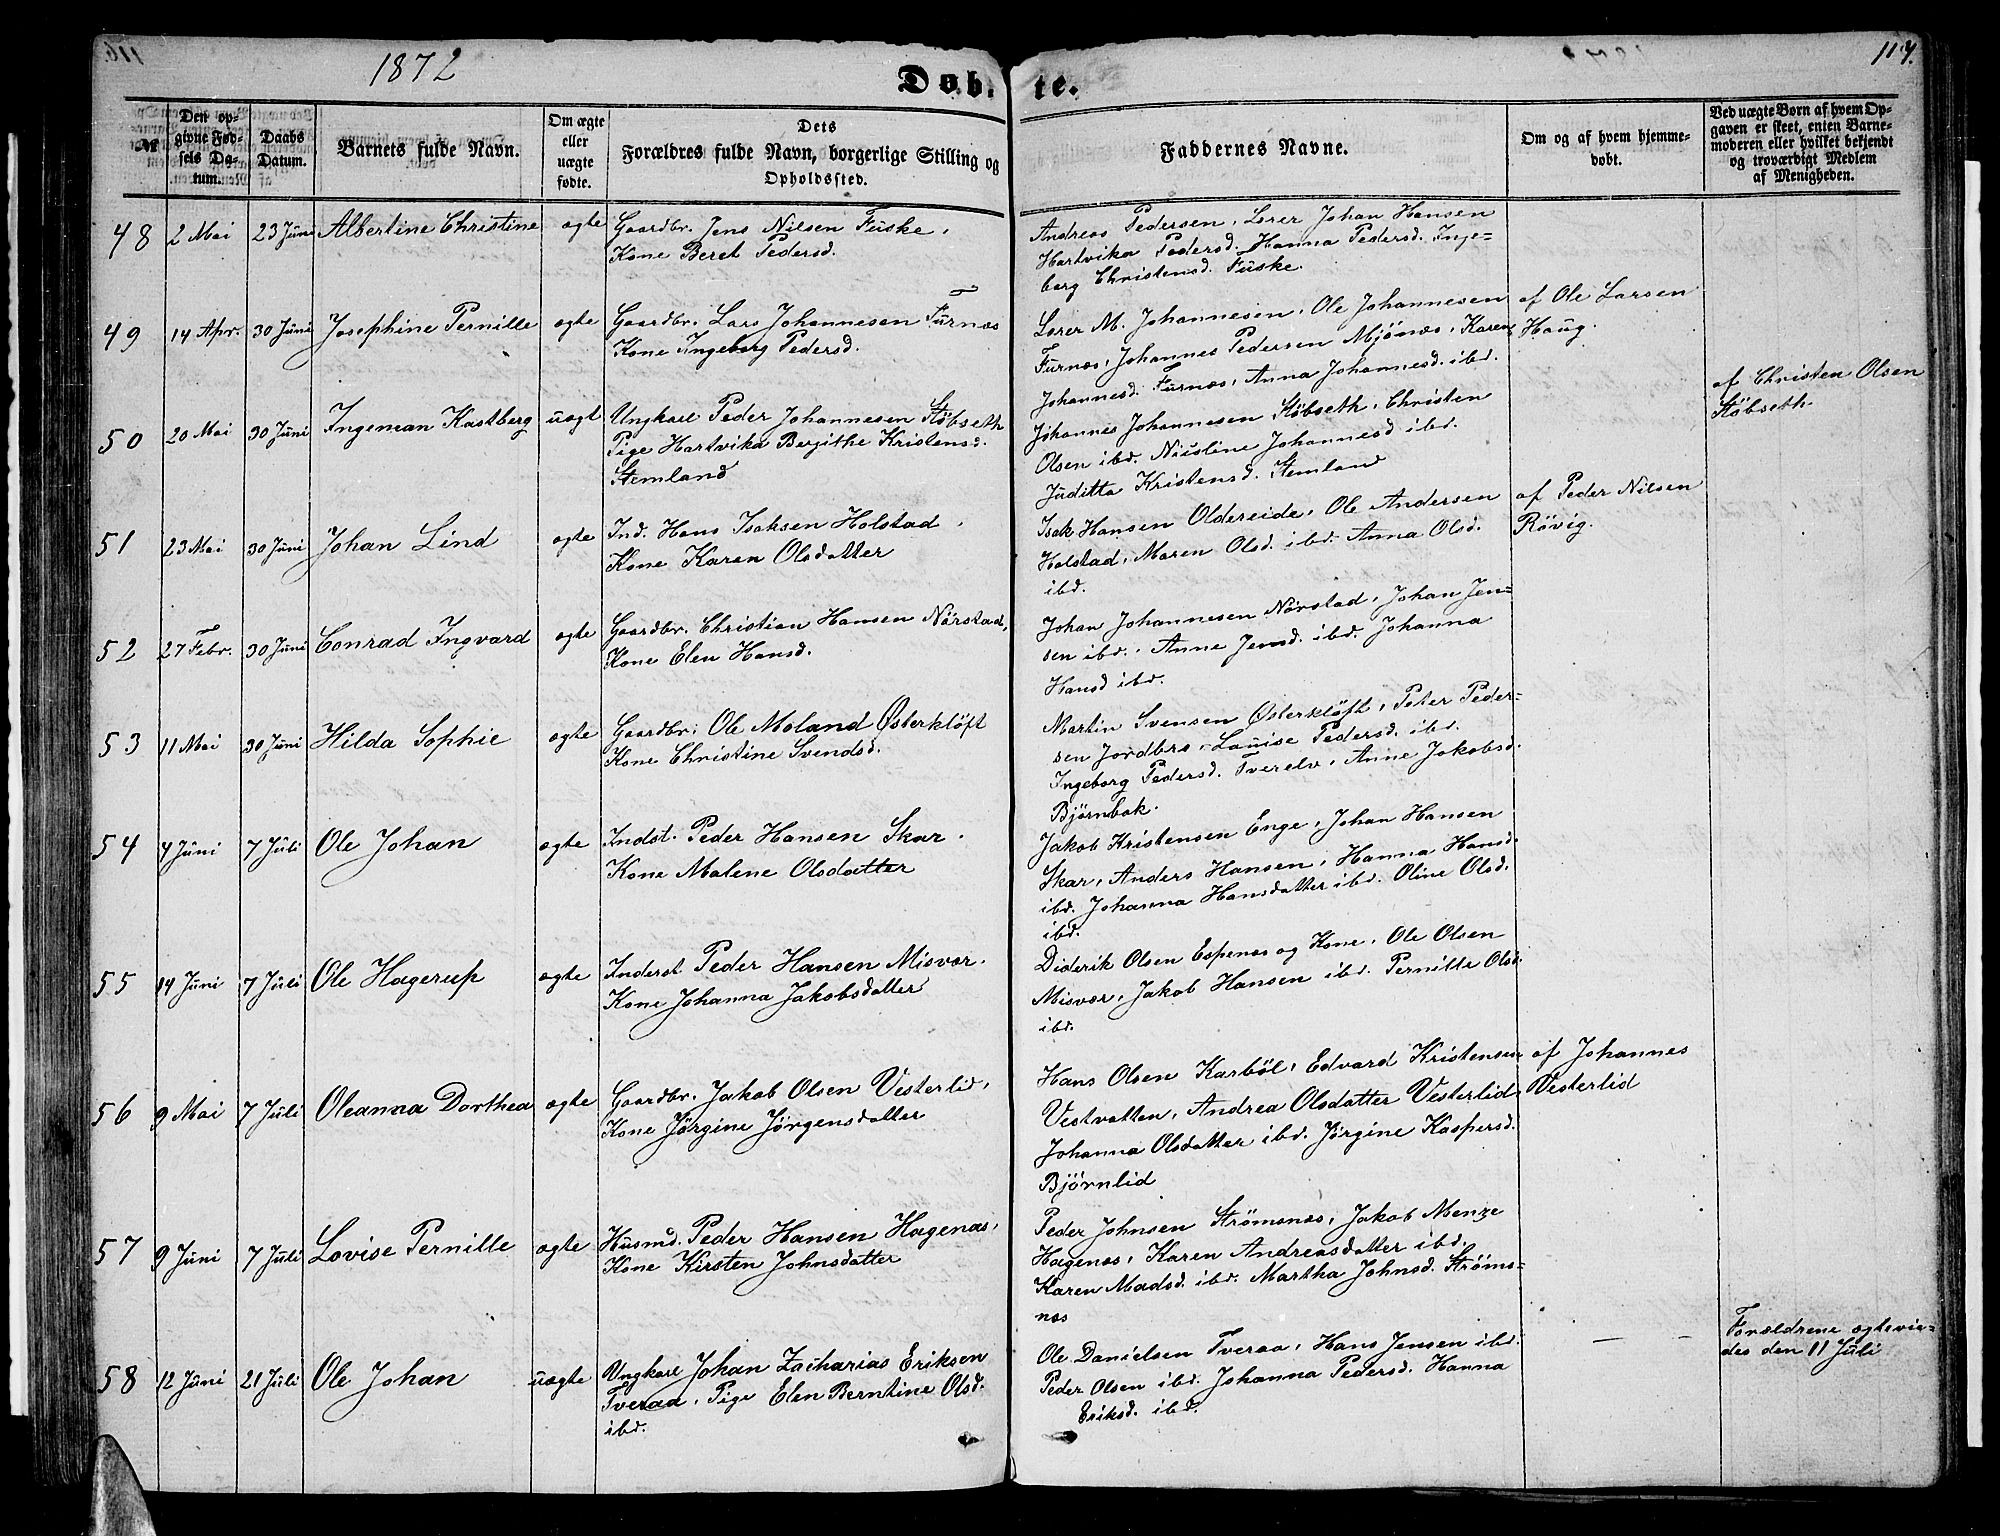 1872
Døbte.
117.
№
Den opgivne Fødsels Datum.
Daabs Datum.
Barnets fulde Navn.
Om ægte eller uægte fødte.
Dets Forældres fulde Navn, borgerlige Stilling og Opholdssted.
Faddernes Navne.
Om og af hvem hjemmedøbt.
Ved uægte Børn af hvem Opgaven er skeet, enten Barnemoderen eller hvilket bekjendt og troværdigt Medlem af Menigheden.
48 2 Mai 23 Juni Albertine Christine ægte Gaardbr. Jens Nilsen Fuske,
Kone Beret Pedersd.
Andreas Pedersen, Lorer Johan Hansen
Hartvika Pedersd. Hanna Pedersd. Inge=
borg Christensd. Fuske.
49 14 Apr. 30 Juni Josephine Pernille ægte Gaardbr. Lars Johannesen Furnæs
Kone Ingeborg Pedersd.
Lorer M. Johannesen, Ole Johannesen
Furnæs, Johannes Pedersen Mjönæs, Karen
Johannesd. Furnæs, Anna Johannesd. ibd.
af Ole Larsen
Haug.
50 20 Mai 30 Juni Ingeman Kastberg uægt Ungkarl Peder Johannesen Støbseth
Pige Hartvika Bergithe Kristensd.
Stemland
Johannes Johannesen Støbseth, Christen
Olsen ibd. Nilsine Johannesd. ibd.
Juditta Kristensd. Stemland
af Christen Olsen
Støbseth.
51 23 Mai 30 Juni Johan Lind ægte Ind. Hans Isaksen Holstad,
Kone Karen Olsdatter
Isak Hansen Oldereide, Ole Andersen
Holstad, Maren Olsd. ibd. Anna Olsd.
ibd.
af Peder Nilsen
Rövig.
52 27 Febr. 30 Juni Conrad Ingvard ægte Gaardbr. Christian Hansen Nörstad,
Kone Elen Hansd.
Johan Johannesen Nörstad, Johan Jen=
sen ibd., Anne Jensd. ibd. Johanna
Hansd ibd.
53 11 Mai 30 Juni Hilda Sophie ægte Gaardbr. Ole Moland Østerklöft
Kone Christine Svendsd.
Martin Svensen Østerklöft, Peter Peder=
sen Jordbro, Louise Pedersd. ibd.
Ingeborg Pedersd. Tverelv, Anne Jakobsd.
Björnbak.
54 4 Juni 7 Juli Ole Johan ægte Indst. Peder Hansen Skar.
Kone Malene Olsdatter
Jakob Kristensen Enge, Johan Hansen
Skar, Anders Hansen, Hanna Hansd.
ibd. Johanna Hansdatter ibd. Oline Olsd.
ibd.
55 14 Juni 7 Juli Ole Hagerup ægte Inderst. Peder Hansen Misvær.
Kone Johanna Jakobsdatter
Diderik Olsen Espenæs og Kone, Ole Olsen
Misvær, Jakob Hansen ibd. Pernille Olsd.
ibd.
56 9 Mai 7 Juli Oleanna Dorthea ægte Gaardbr. Jakob Olsen Vesterlid,
Kone Jörgine Jörgensdatter
Hans Olsen Karböl, Edvard Kristensen
Vestvatten, Andrea Olsdatter Vesterlid,
Johanna Olsdatter ibd. Jörgine Kaspersd.
Björnlid
af Johannes
Vesterlid
57 9 Juni 7 Juli Lovise Pernille ægte Husmd. Peder Hansen Hagenæs,
Kone Kirsten Johnsdatter
Peder Johnsen Strömsnæs, Jakob Menze
Hagenæs, Karen Andreasdatter ibd.
Karen Madsd. ibd. Martha Johnsd. Ströms=
næs
58 12 Juni 21 Juli Ole Johan uægte Ungkarl Johan Zacharias Eriksen
Tveraa, Pige Elen Berntine Olsd.
ibd.
Ole Danielsen Tveraa, Hans Jensen ibd.
Peder Olsen ibd. Johanna Pedersd. Hanna
Eriksd. ibd.
— —
Forældrene ægtevie=
des den 11 Juli